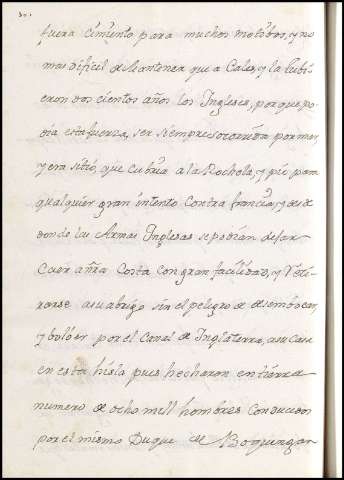 fuera cimiento para muchos motibos, y no
mas dificil de Mantener que a Cales, y la tubi
eron dos cientos años los Ingleses, porque po
dia esta fuerza, ser siempre socorrida por mar,
y era sitio, que cubria a la Rochela, y pie para
qualquier gran intento contra francia, y desde
donde las Armas Inglesas se podian dejar
Caer a ñra Costa con gran facilidad, y Reti
rarse a su abrigo sin el peligro de desembocar,
y bolber por el Canal de Inglaterra, a su Casa
en esta Hisla pues hecharon en tierra
numero de ocho mill hombres Conducidos
por el mismo Duque de Boquingan